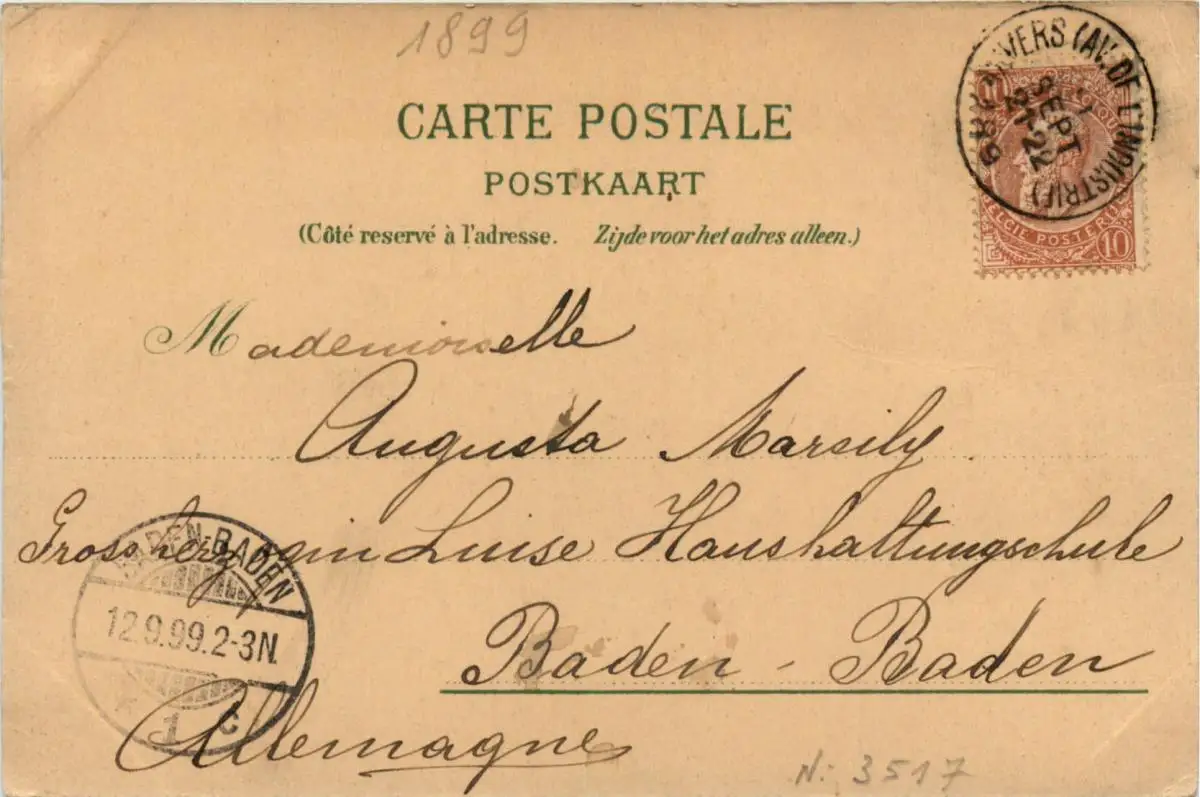 1899
CARTE POSTALE
POSTKAART
(Côté reservé à l'adresse. Zijde voor het adres alleen.)
ANVERS (AV. DE L'INDUSTRIE)
SEPT
21-22
10
BELGIQUE
BELGIE POSTERIJ
10
Mademoiselle
Augusta Marsily
Grossherzogin Luise Haushaltungschule
Baden - Baden
Allemagne
BADEN-BADEN
12.9.99.2-3N.
* 1 c
N: 3517